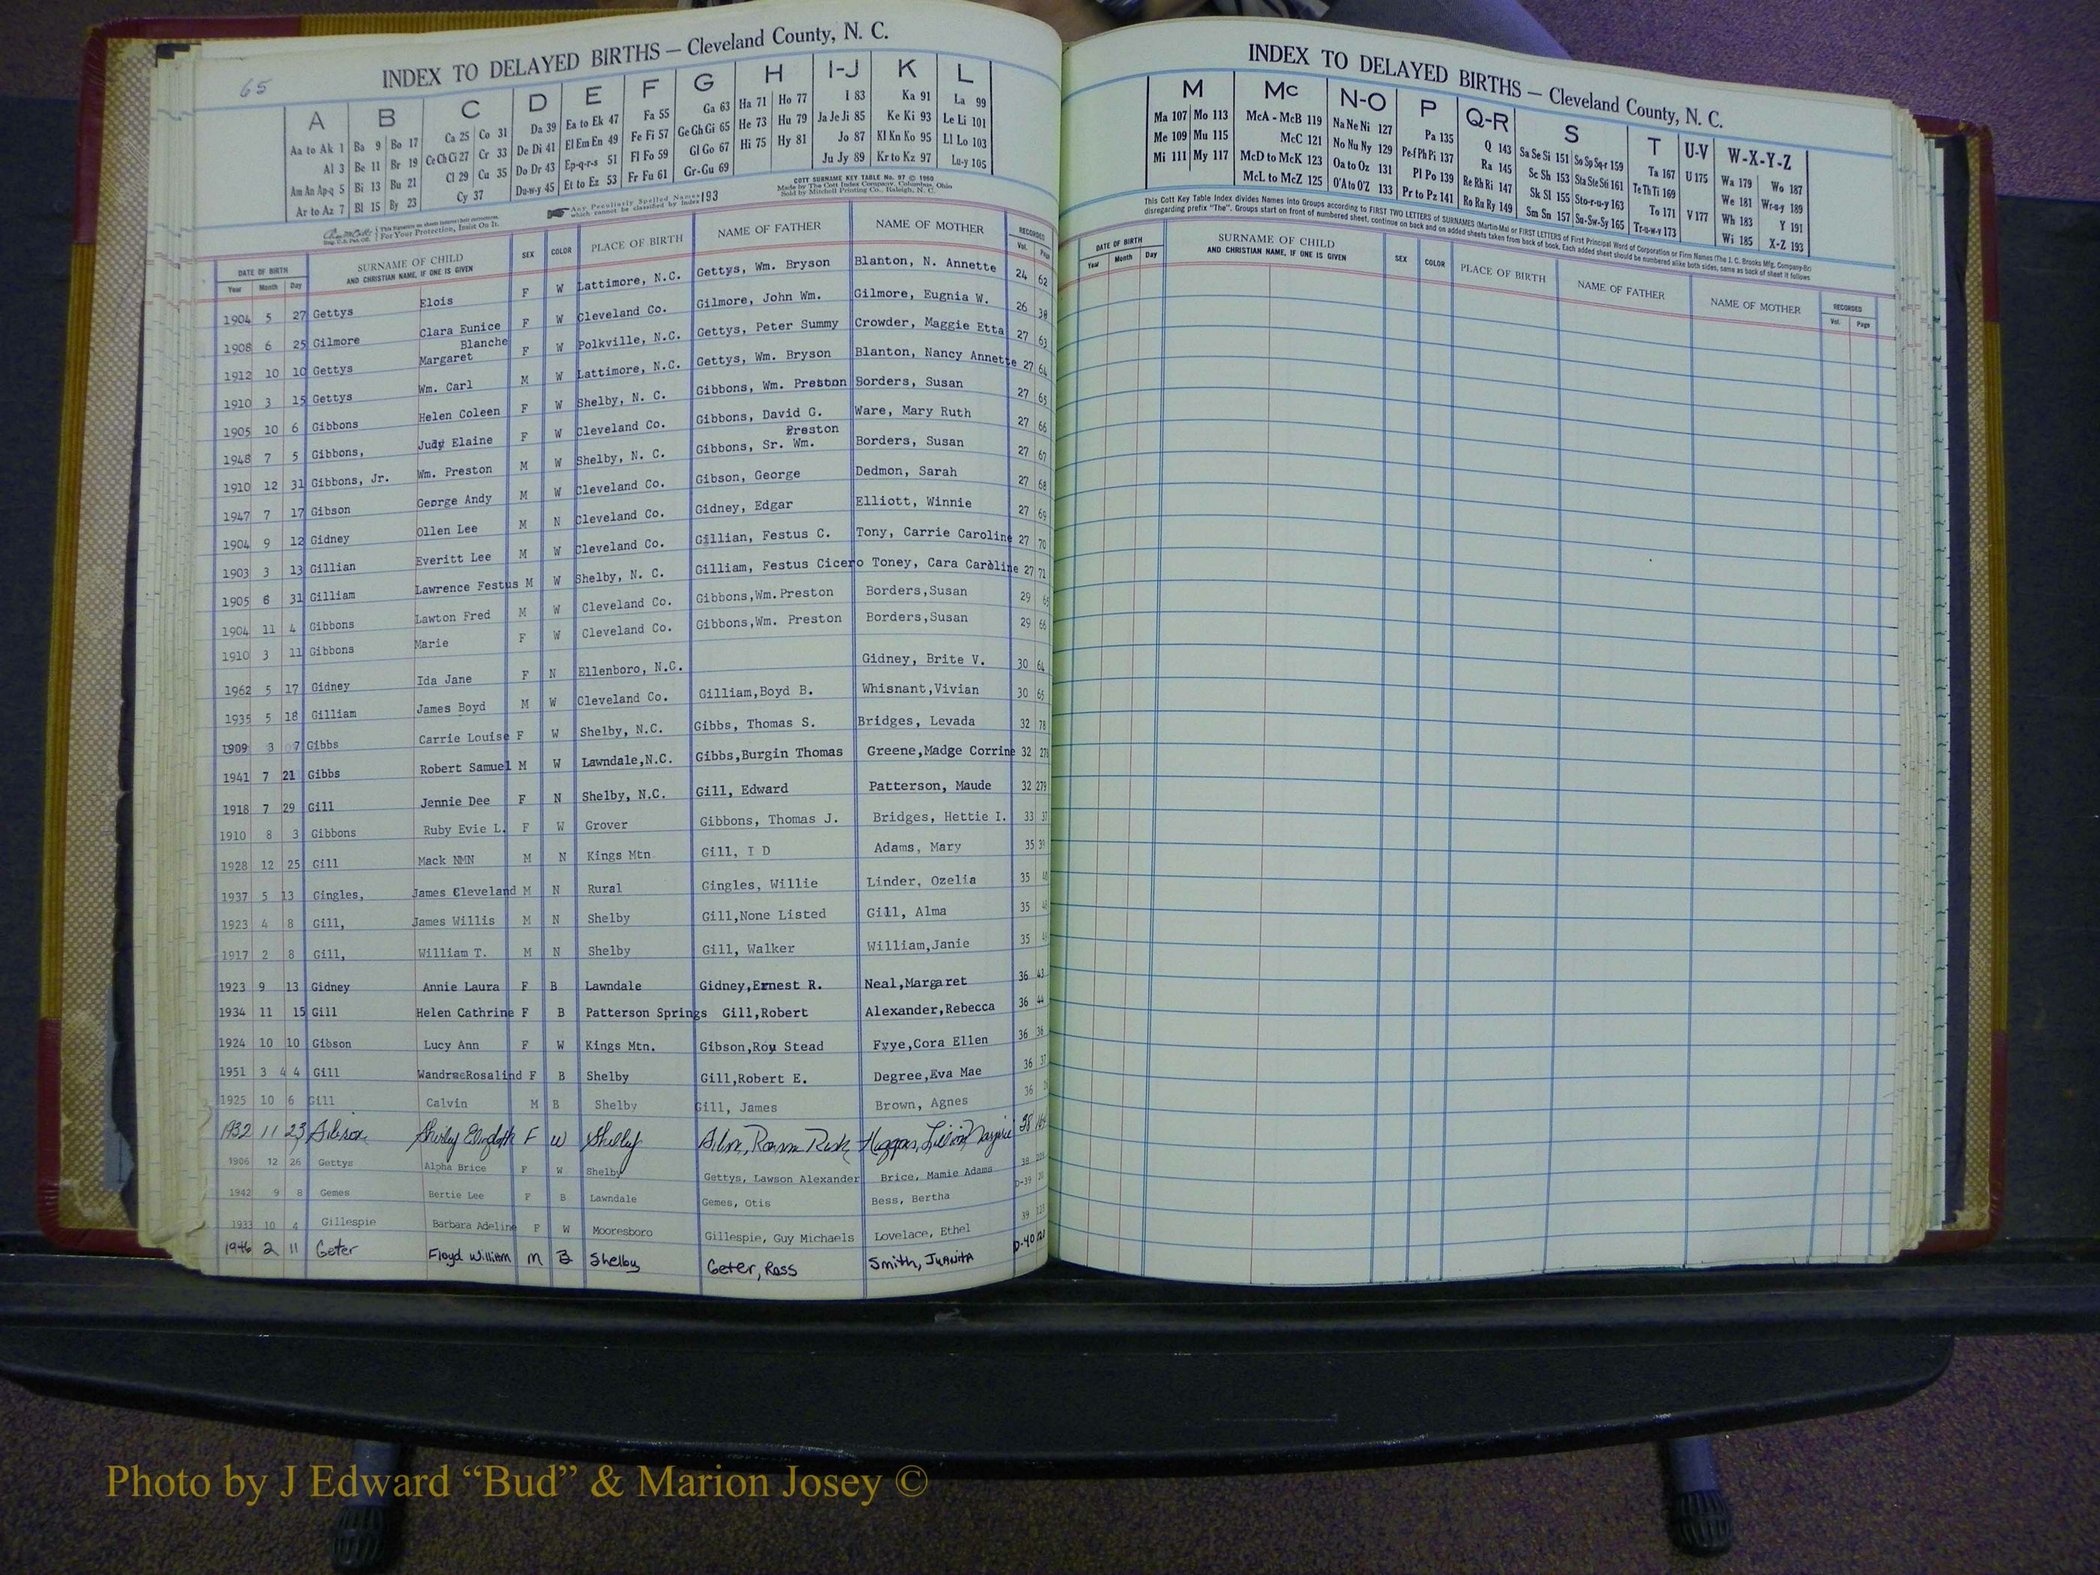 65
INDEX TO DELAYED BIRTHS — Cleveland County, N. C.
A B C D E F G H I-J K L
Aa to Ak 1 Ba 9 Bo 17 Ca 25 Co 31 Da 39 Ea to Ek 47 Fa 55 Ga 63 Ha 71 Ho 77 I 83 Ka 91 La 99
Al 3 Be 11 Br 19 Ce Ch Ci 27 Cr 33 De Di 41 El Em En 49 Fe Fi 57 Ge Gh Gi 65 He 73 Hu 79 Ja Je Ji 85 Ke Ki 93 Le Li 101
Am An Ap-q 5 Bi 13 Bu 21 Cl 29 Cu 35 Do Dr 43 Ep-q-r-s 51 Fl Fo 59 Gl Go 67 Hi 75 Hy 81 Jo 87 Kl Kn Ko 95 Ll Lo 103
Ar to Az 7 Bl 15 By 23 Cy 37 Du-w-y 45 Et to Ez 53 Fr Fu 61 Gr-Gu 69 Ju Jy 89 Kr to Kz 97 Lu-y 105
Any Peculiarly Spelled Names which cannot be classified by Index 193
COTT SURNAME KEY TABLE No. 97 © 1960
Made by The Cott Index Company, Columbus, Ohio
Sold by Mitchell Printing Co., Raleigh, N. C.
For Your Protection, Insist On It.
DATE OF BIRTH Year Month Day SURNAME OF CHILD AND CHRISTIAN NAME, IF ONE IS GIVEN SEX COLOR PLACE OF BIRTH NAME OF FATHER NAME OF MOTHER RECORDED Vol. Page
1904 5 27 Gettys Elois F W Lattimore, N.C. Gettys, Wm. Bryson Blanton, N. Annette 24 62
1908 6 25 Gilmore Clara Eunice F W Cleveland Co. Gilmore, John Wm. Gilmore, Eugnia W. 26 38
1912 10 10 Gettys Margaret Blanche F W Polkville, N.C. Gettys, Peter Summy Crowder, Maggie Etta 27 63
1910 3 15 Gettys Wm. Carl M W Lattimore, N.C. Gettys, Wm. Bryson Blanton, Nancy Annette 27 64
1905 10 6 Gibbons Helen Coleen F W Shelby, N. C. Gibbons, Wm. Preston Borders, Susan 27 65
1948 7 5 Gibbons, Judy Elaine F W Cleveland Co. Gibbons, David G. Ware, Mary Ruth 27 66
1910 12 31 Gibbons, Jr. Wm. Preston M W Shelby, N. C. Gibbons, Sr. Wm. Preston Borders, Susan 27 67
1947 7 17 Gibson George Andy M W Cleveland Co. Gibson, George Dedmon, Sarah 27 68
1904 9 12 Gidney Ollen Lee M N Cleveland Co. Gidney, Edgar Elliott, Winnie 27 69
1903 3 13 Gillian Everitt Lee M W Cleveland Co. Gillian, Festus C. Tony, Carrie Caroline 27 70
1905 8 31 Gilliam Lawrence Festus M W Shelby, N. C. Gilliam, Festus Cicero Toney, Cara Caroline 27 71
1904 11 4 Gibbons Lawton Fred M W Cleveland Co. Gibbons,Wm.Preston Borders,Susan 29 65
1910 3 11 Gibbons Marie F W Cleveland Co. Gibbons,Wm. Preston Borders,Susan 29 66
1962 5 17 Gidney Ida Jane F N Ellenboro, N.C. Gidney, Brite V. 30 64
1935 5 18 Gilliam James Boyd M W Cleveland Co. Gilliam,Boyd B. Whisnant,Vivian 30 65
1909 3 7 Gibbs Carrie Louise F W Shelby, N.C. Gibbs, Thomas S. Bridges, Levada 32 78
1941 7 21 Gibbs Robert Samuel M W Lawndale,N.C. Gibbs,Burgin Thomas Greene,Madge Corrine 32 278
1918 7 29 Gill Jennie Dee F N Shelby, N.C. Gill, Edward Patterson, Maude 32 279
1910 8 3 Gibbons Ruby Evie L. F W Grover Gibbons, Thomas J. Bridges, Hettie I. 33 37
1928 12 25 Gill Mack NMN M N Kings Mtn Gill, I D Adams, Mary 35 39
1937 5 13 Gingles, James Cleveland M N Rural Gingles, Willie Linder, Ozelia 35
1923 4 8 Gill, James Willis M N Shelby Gill,None Listed Gill, Alma 35
1917 2 8 Gill, William T. M N Shelby Gill, Walker William,Janie 35
1923 9 13 Gidney Annie Laura F B Lawndale Gidney,Ernest R. Neal,Margaret 36 43
1934 11 15 Gill Helen Cathrine F B Patterson Springs Gill,Robert Alexander,Rebecca 36 44
1924 10 10 Gibson Lucy Ann F W Kings Mtn. Gibson,Roy Stead Frye,Cora Ellen 36 36
1951 3 4 Gill Rosalind F B Shelby Gill,Robert E. Degree,Eva Mae 36 37
1925 10 6 Gill Calvin M B Shelby Gill, James Brown, Agnes 36
1932 11 23 Gibson Shirley Elizabeth F W Shelby 38
1906 12 26 Gettys Alpha Brice F W Shelby Gettys, Lawson Alexander Brice, Mamie Adams 38
1942 9 8 Gemes Bertie Lee F B Lawndale Gemes, Otis Bess, Bertha D-39
1933 10 4 Gillespie Barbara Adeline F W Mooresboro Gillespie, Guy Michaels Lovelace, Ethel 39 123
1946 2 11 Geter Floyd William M B Shelby Geter, Ross Smith, Juanita D-40
INDEX TO DELAYED BIRTHS — Cleveland County, N. C.
M Mc N-O P Q-R S T U-V W-X-Y-Z
Ma 107 Mo 113 McA - McB 119 Na Ne Ni 127 Pa 135 Q 143 Sa Se Si 151 So Sp Sq-r 159 Ta 167 U 175 Wa 179 Wo 187
Me 109 Mu 115 McC 121 No Nu Ny 129 Pe-f Ph Pi 137 Ra 145 Sc Sh 153 Sta Ste Sti 161 Te Th Ti 169 We 181 Wr-u-y 189
Mi 111 My 117 McD to McK 123 Oa to Oz 131 Pl Po 139 Re Rh Ri 147 Sk Sl 155 Sto-r-u-y 163 To 171 V 177 Wh 183 Y 191
McL to McZ 125 O'A to O'Z 133 Pr to Pz 141 Ro Ru Ry 149 Sm Sn 157 Su-Sw-Sy 165 Tr-u-w-y 173 Wi 185 X-Z 193
This Cott Key Table Index divides Names into Groups according to FIRST TWO LETTERS of SURNAMES (Martin-Ma) or FIRST LETTERS of First Principal Word of Corporation or Firm Names (The J. C. Brooks Mfg. Company-Br)
disregarding prefix "The". Groups start on front of numbered sheet, continue on back and on added sheets taken from back of book. Each added sheet should be numbered alike both sides, same as back of sheet it follows
DATE OF BIRTH Year Month Day SURNAME OF CHILD AND CHRISTIAN NAME, IF ONE IS GIVEN SEX COLOR PLACE OF BIRTH NAME OF FATHER NAME OF MOTHER RECORDED Vol. Page
Photo by J Edward “Bud” & Marion Josey ©